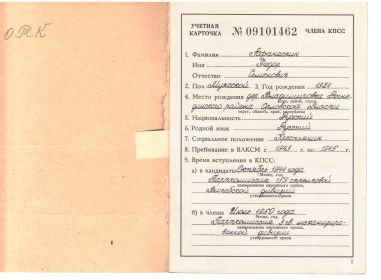 ОТК
УЧЕТНАЯ КАРТОЧКА № 09101462 ЧЛЕНА КПСС
1. Фамилия
Имя Федор
Отчество Семенович
2. Пол Мужской 3. Год рождения 1924
4. Место рождения дер. Владимировка
района Орловской области
округ, область, край, республика
5. Национальность Русский
6. Родной язык Русский
7. Социальное положение Крестьянин
8. Пребывание в ВЛКСМ с 1943 г. по 1945 г.
9. Время вступления в КПСС:
а) в кандидаты Октябрь 1944 года
Месяц, год
Парткомиссия 159 стрелковой
наименование партийного органа,
дивизии
утвердившего прием
б) в члены Июль 1950 года
Месяц, год
Парткомиссия механизиро-
наименование партийного органа,
ванной дивизии
утвердившего прием
1